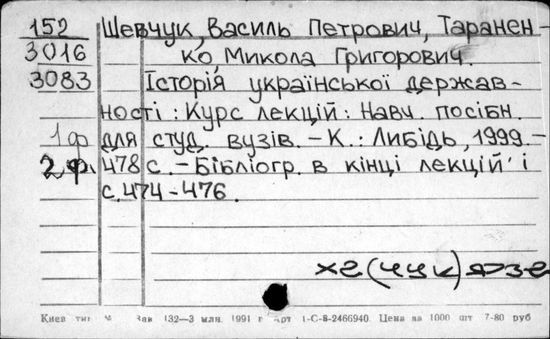 152 Шевчук, Василь Петрович, Таранен-
3016 ко, Микола Григорович.
3083 Історія української держав-
ності : Курс лекцій : Навч. посібн.
1 ф для студ. вузів. – К. : Либідь, 1999. –
2 ф. 478 с. – Бібліогр. в кінці лекцій і
с. 474 – 476.
хе(чук)язе
Киев тип. Зак 132—3 млн. 1991 г 1-С-8-2466940. Цена за 1000 шт 7-80 руб